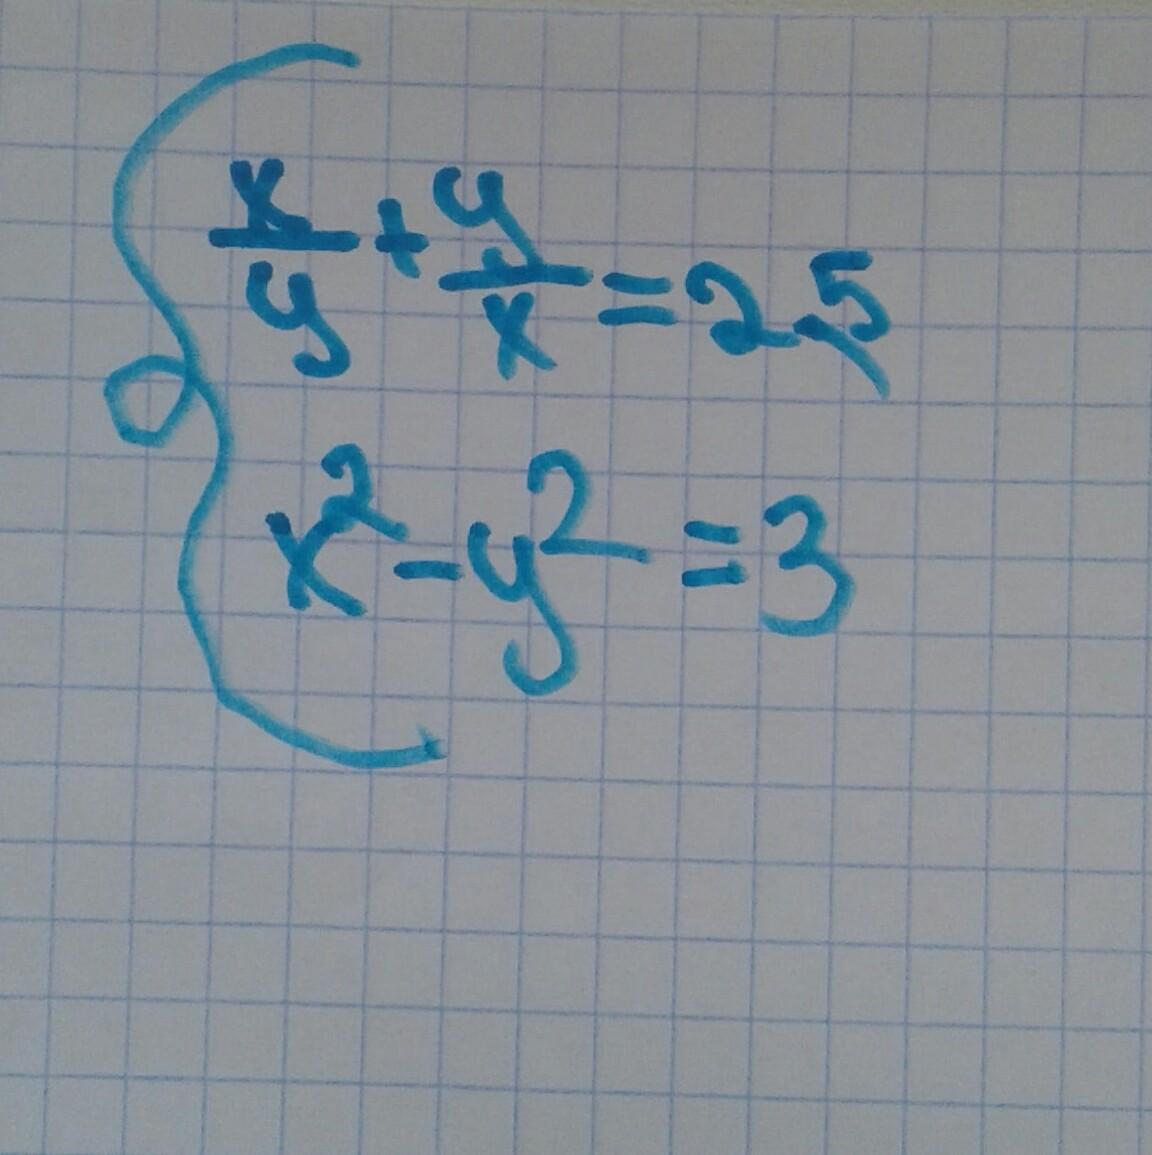 x/y + y/x = 2,5
x² - y² = 3